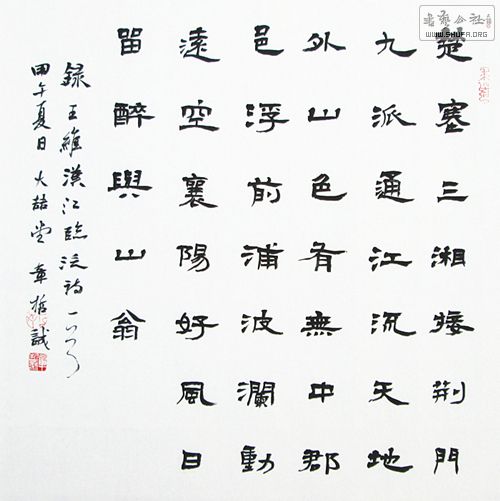 書藝公社
WWW.SHUFA.ORG
楚塞三湘接荊門
九派通江流天地
外山色有無中郡
邑浮前浦波瀾動
遠空襄陽好風日
留醉與山翁
録王維漢江臨泛詩一首
甲午夏日大喆堂章哲誠